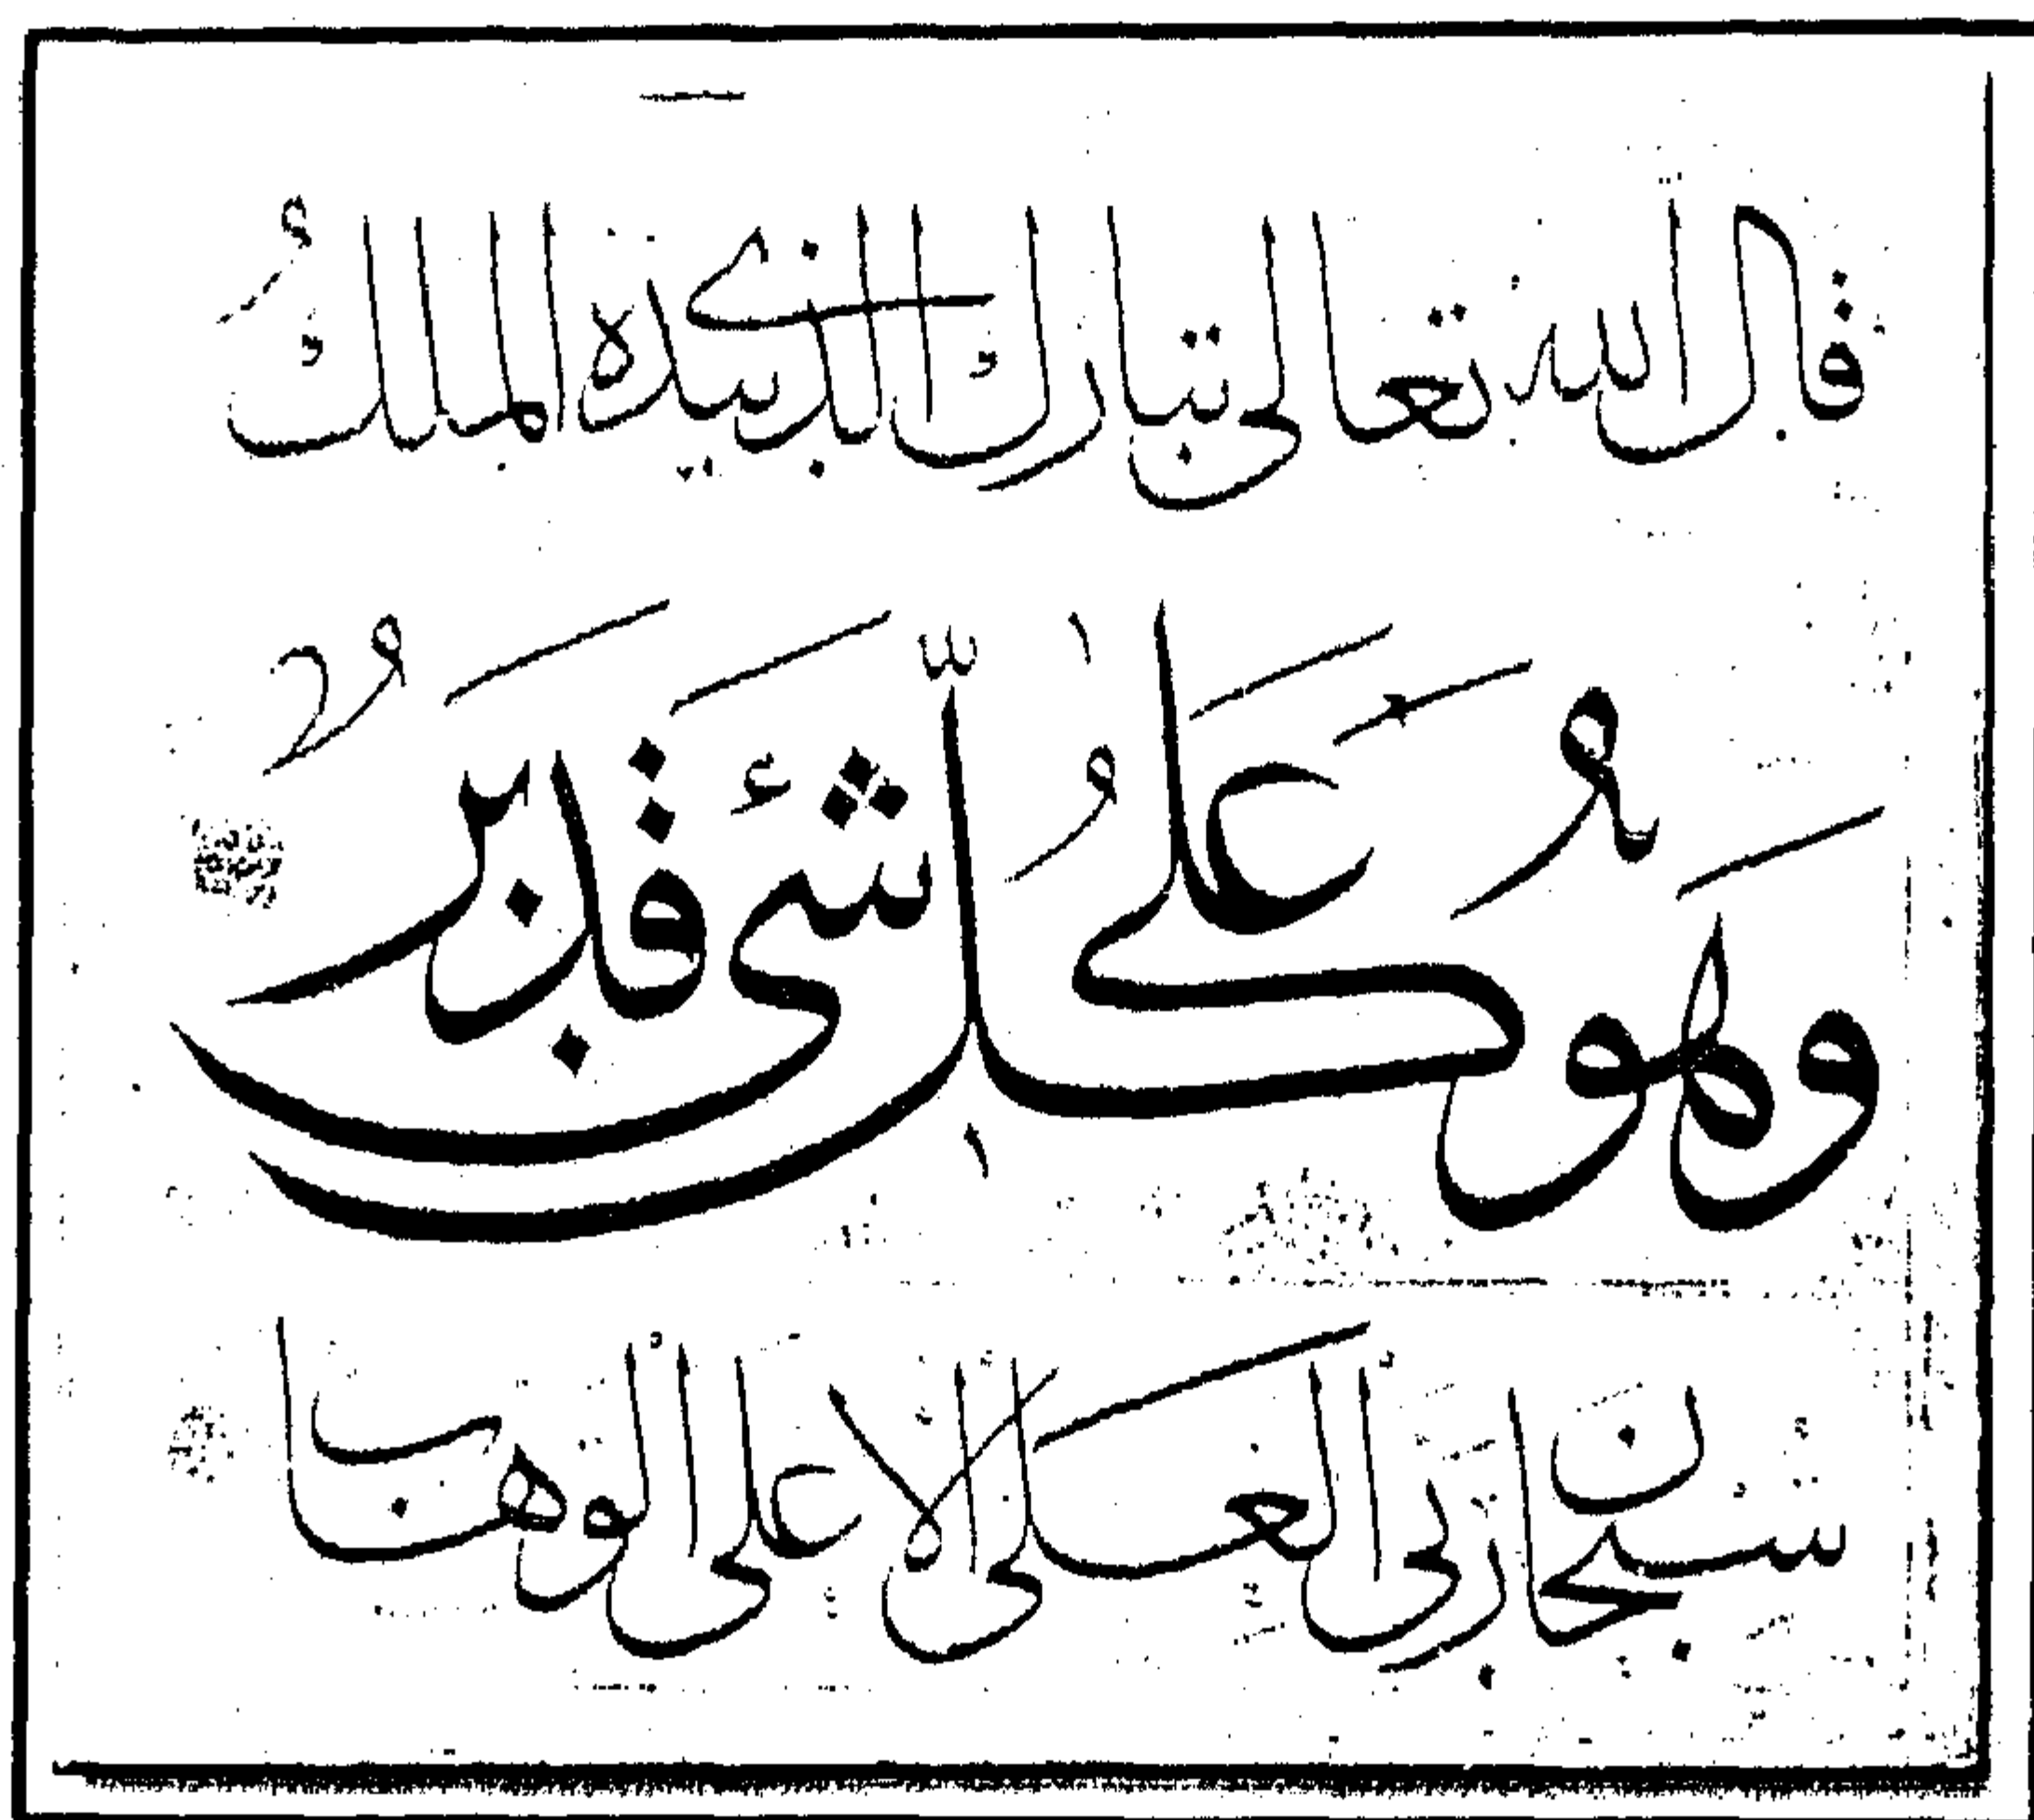 قال الله تعالى تبارك الذي بيده الملك
وَهُوَ عَلَىٰ كُلِّ شَيْءٍ قَدِيرٌ
سبحان ربي العلي الأعلى الوهاب